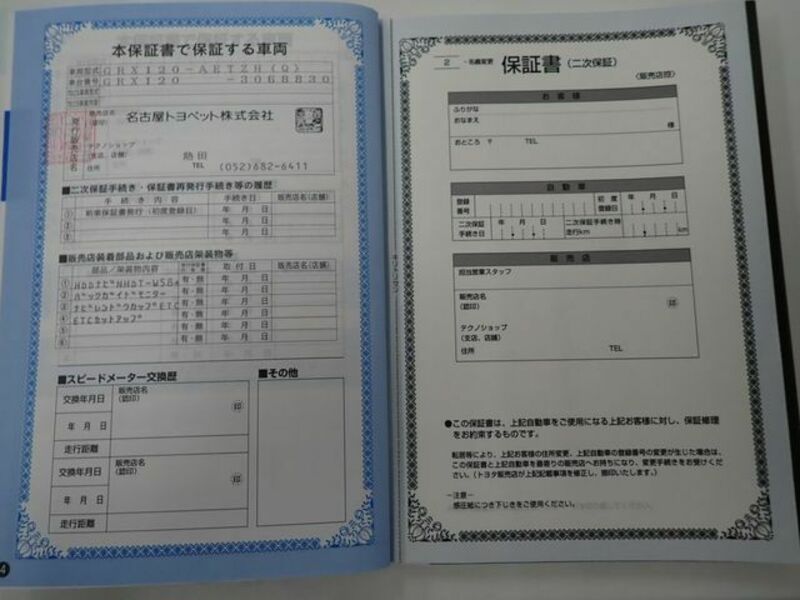 本保証書で保証する車両
車両型式 GRX120-AETZH(Q)
車台番号 GRX120 -3068830
発行販売店名
販売店名
名古屋トヨペット株式会社
テクノショップ
(支店、店舗) 熱田
住所 TEL (052)682-6411
■二次保証手続き・保証書再発行手続き等の履歴
手続き内容 手続き日 販売店名(店舗)
① 新車保証書発行(初度登録日) 年 月 日
② 年 月 日
③ 年 月 日
■販売店装着部品および販売店架装物等
部品/架装物内容 取付日 販売店名(店舗)
① HDDナビNHDT-W58 有・無 年 月 日
② バックガイドモニター 有・無 年 月 日
③ ナビレンドウカップETC 有・無 年 月 日
④ ETCセットアップ 有・無 年 月 日
⑤ 有・無 年 月 日
⑥ 有・無 年 月 日
■スピードメーター交換歴
交換年月日 販売店名
(認印) 印
年 月 日
走行距離
交換年月日 販売店名
(認印) 印
年 月 日
走行距離
■その他
4
2 -名義変更 保証書(二次保証)
〈販売店控〉
お客様
ふりがな
おなまえ 様
おところ 〒 TEL
自動車
登録番号 初度登録日 年 月 日
二次保証手続き日 年 月 日 二次保証手続き時走行km km
販売店
担当営業スタッフ
販売店名
(認印) 印
テクノショップ
(支店、店舗)
住所 TEL
●この保証書は、上記自動車をご使用になる上記お客様に対し、保証修理
をお約束するものです。
転居等により、上記お客様の住所変更、上記自動車の登録番号の変更が生じた場合は、
この保証書と上記自動車を最寄りの販売店へお持ちになり、変更手続きをお受けくだ
さい。(トヨタ販売店が上記記載事項を修正し、捺印いたします。)
-注意-
感圧紙につき下じきをご使用ください。
キリトリセン